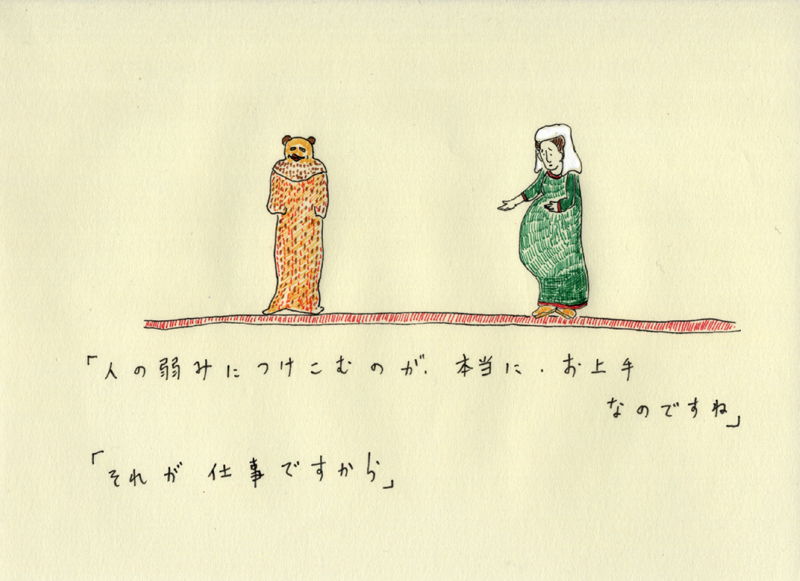 「人の弱みにつけこむのが、本当に、お上手
なのですね」
「それが仕事ですから」